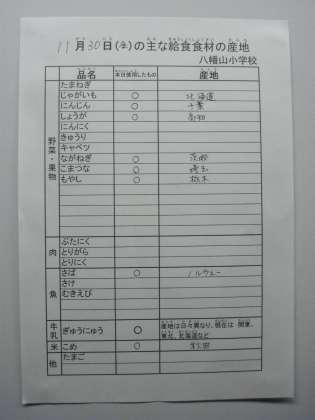 11月30日(金)の主な給食食材の産地
八幡山小学校
品名 本日使用したもの 産地
野菜・果物
たまねぎ
じゃがいも ○ 北海道
にんじん ○ 千葉
しょうが ○ 高知
にんにく
きゅうり
キャベツ
ながねぎ ○ 茨城
こまつな ○ 埼玉
もやし ○ 栃木
肉
ぶたにく
とりがら
とりにく
魚
さば ○ ノルウェー
さけ
むきえび
牛乳 ぎゅうにゅう ○ 産地は日々異なり、現在は 関東、
東北、北海道など
米 こめ ○ 秋田
他 たまご